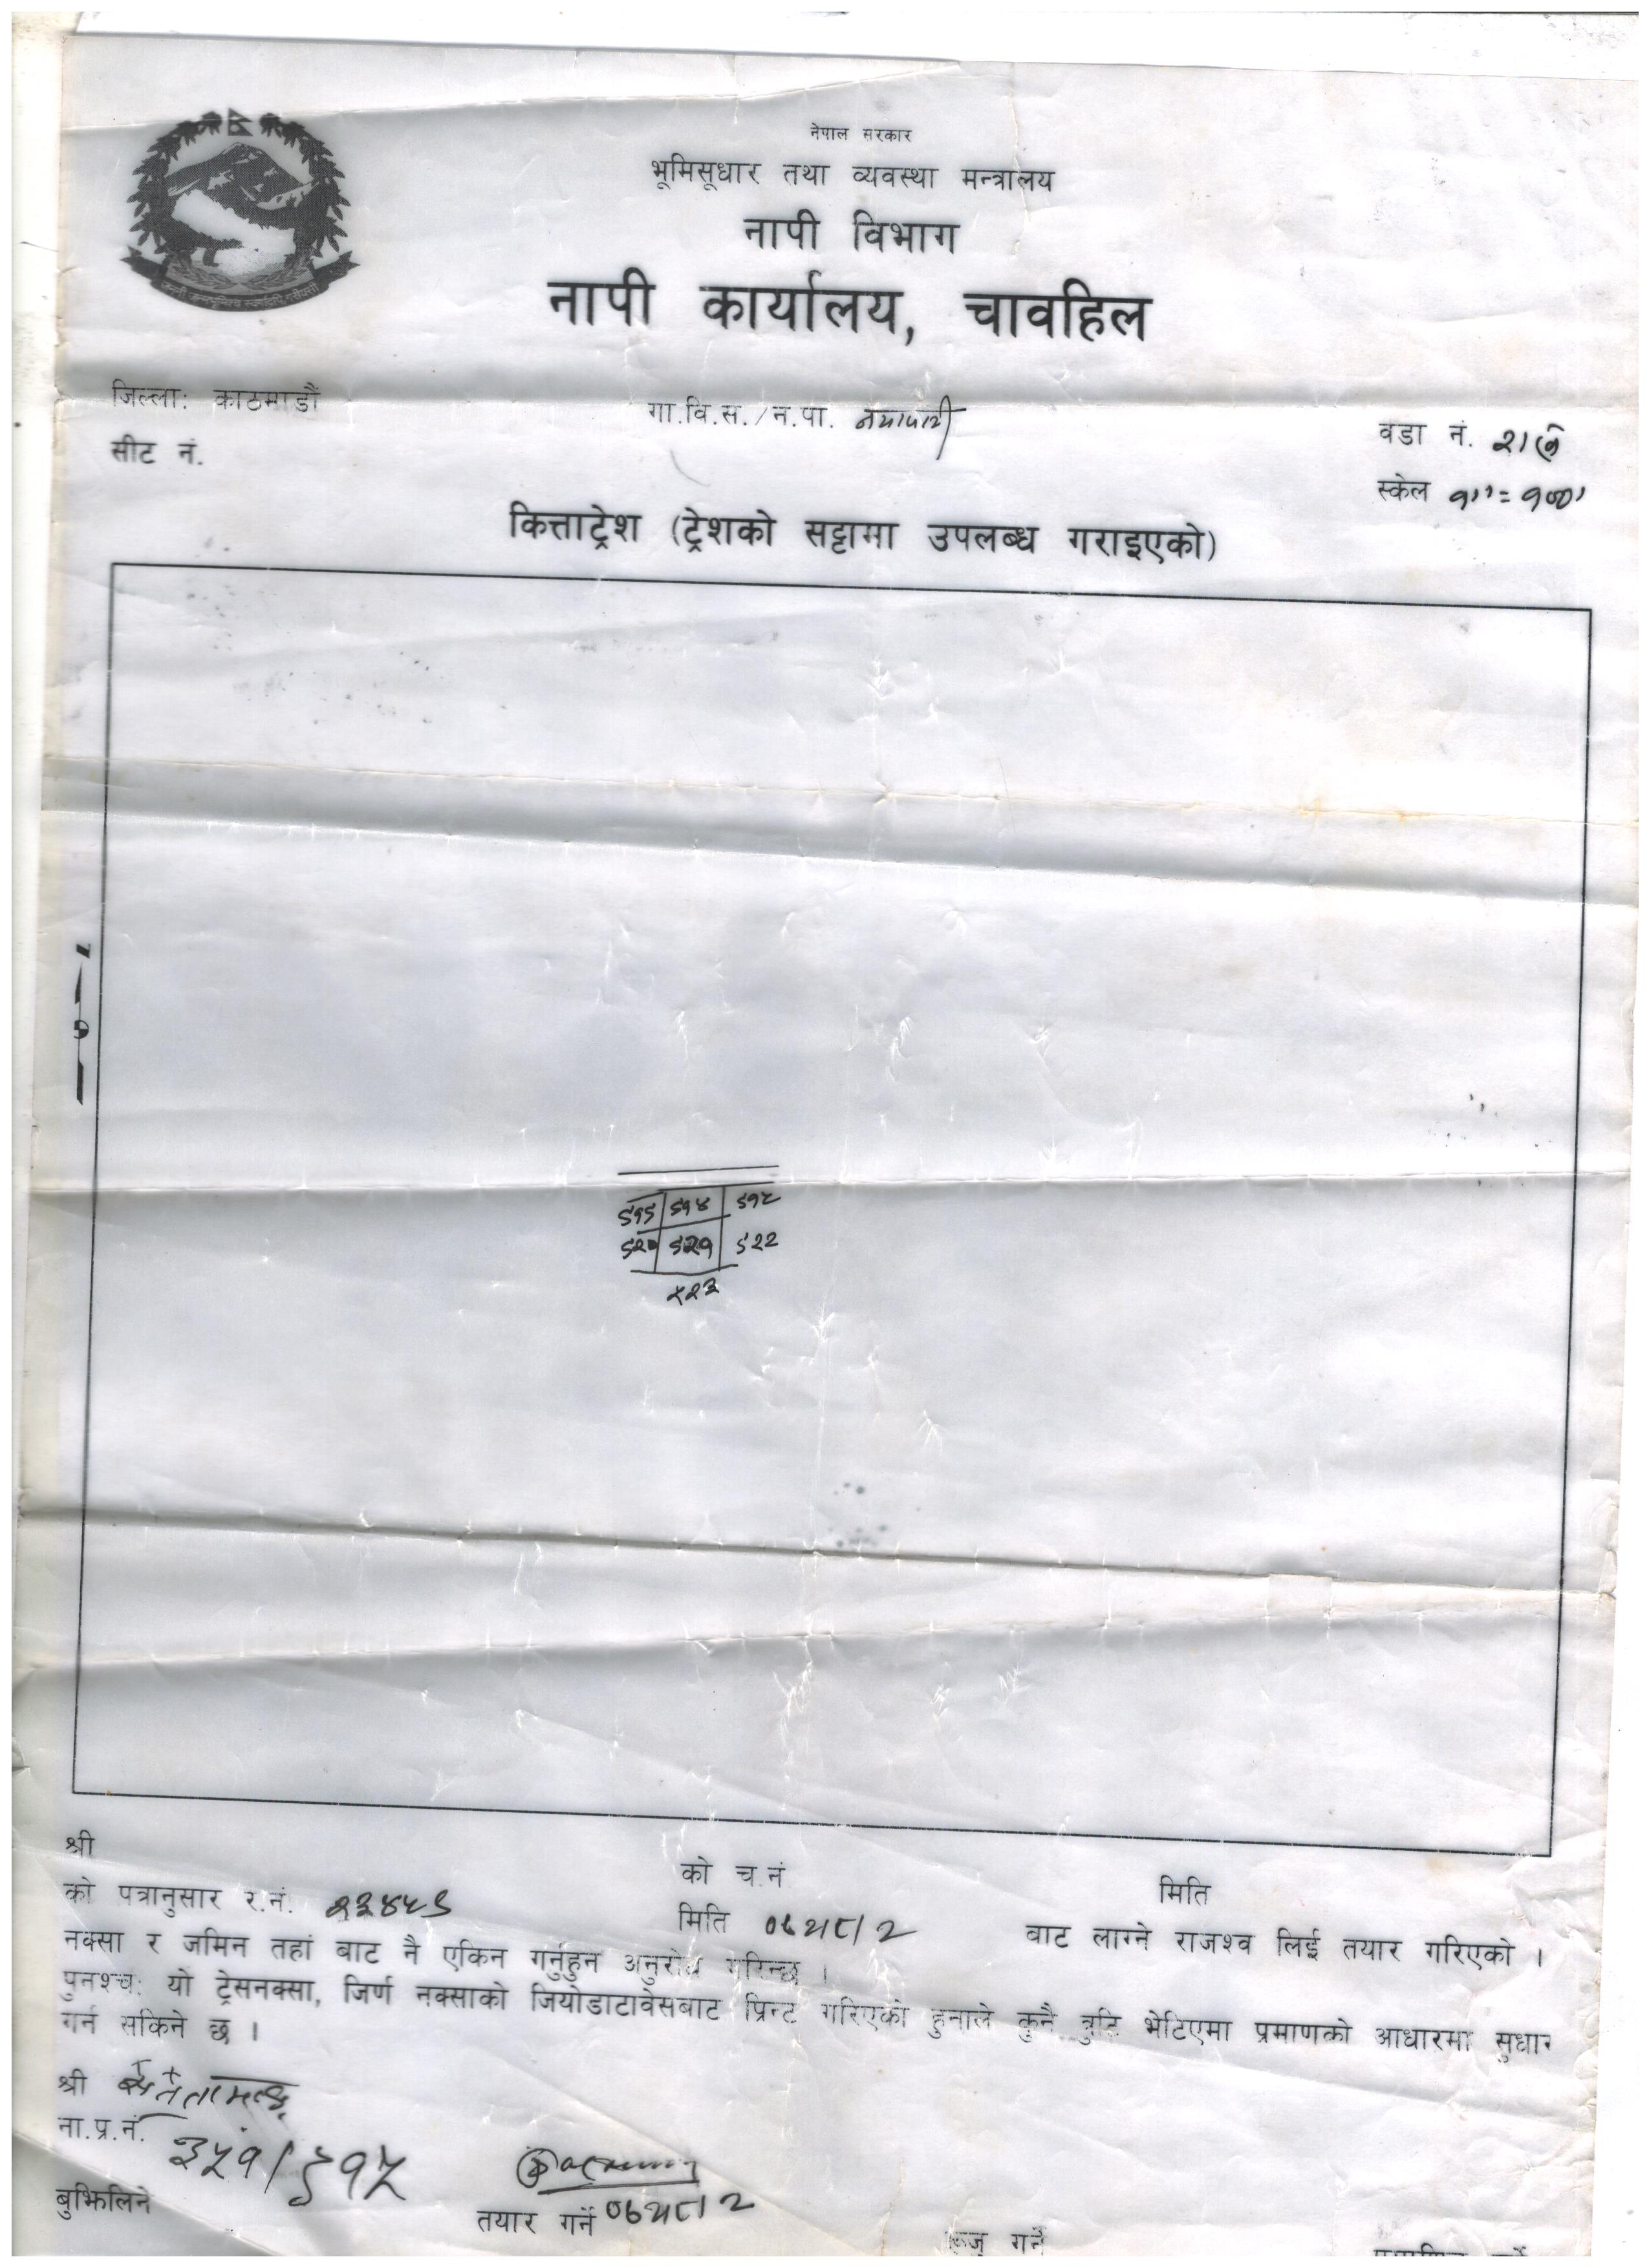 नेपाल सरकार
भूमिसूधार तथा व्यवस्था मन्त्रालय
नापी विभाग
नापी कार्यालय, चावहिल
जिल्ला: काठमाडौं
गा.वि.स./न.पा. नयापाटी
वडा नं. २
सीट नं.
स्केल १''=१००'
कित्ताट्रेश (ट्रेशको सट्टामा उपलब्ध गराइएको)
५१४
५२० ५२१ ५२२
५२३
श्री
को च.नं
मिति
को पत्रानुसार र.नं.
मिति
बाट लाग्ने राजश्व लिई तयार गरिएको ।
नक्सा र जमिन तहां बाट नै एकिन गर्नुहुन अनुरोध गरिन्छ ।
पुनश्चः यो ट्रेसनक्सा, जिर्ण नक्साको जियोडाटावेसबाट प्रिन्ट गरिएको हुनाले कुनै त्रुटि भेटिएमा प्रमाणको आधारमा सुधार
गर्न सकिने छ ।
श्री
ना.प्र.नं. ३५१/
बुझिलिने
तयार गर्ने
रुजु गर्ने